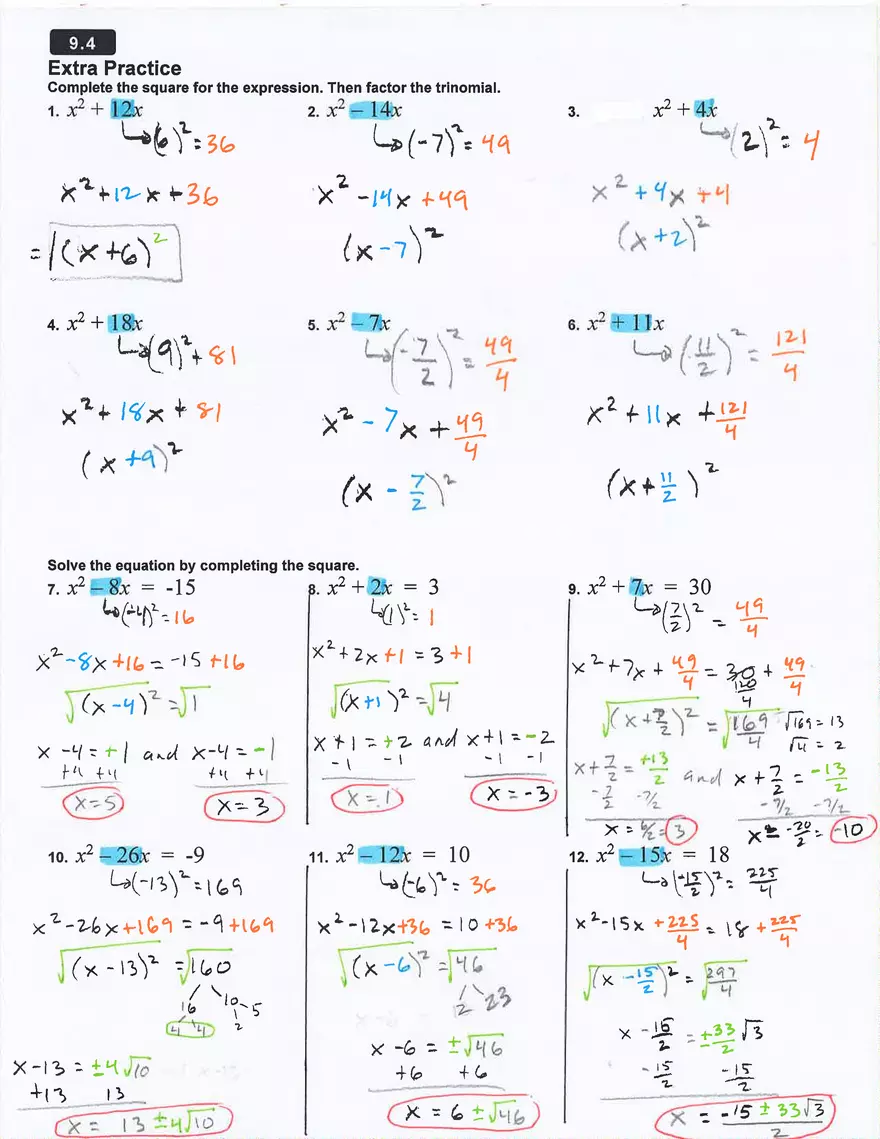 9.4
Extra Practice
Complete the square for the expression. Then factor the trinomial.
1. x² + 12x
↳(6)² = 36
x² + 12x + 36
= (x + 6)²
2. x² − 14x
↳(-7)² = 49
x² − 14x + 49
(x − 7)²
3. x² + 4x
↳(2)² = 4
x² + 4x + 4
(x + 2)²
4. x² + 18x
↳(9)² + 81
x² + 18x + 81
(x + 9)²
5. x² − 7x
↳(-7/2)² = 49/4
x² − 7x + 49/4
(x − 7/2)²
6. x² + 11x
↳(11/2)² = 121/4
x² + 11x + 121/4
(x + 11/2)²
Solve the equation by completing the square.
7. x² − 8x = -15
↳(-4)² = 16
x² − 8x + 16 = -15 + 16
√(x − 4)² = √1
x − 4 = +1 and x − 4 = −1
+4 +4 +4 +4
x = 5 x = 3
8. x² + 2x = 3
↳(1)² = 1
x² + 2x + 1 = 3 + 1
√(x + 1)² = √4
x + 1 = +2 and x + 1 = −2
−1 −1 −1 −1
x = 1 x = −3
9. x² + 7x = 30
↳(7/2)² = 49/4
x² + 7x + 49/4 = 30 + 49/4
120/4
√(x + 7/2)² = √169/4 √169 = 13
√4 = 2
x + 7/2 = +13/2 and x + 7/2 = −13/2
−7/2 −7/2 −7/2 −7/2
x = 6/2 = 3 x = −20/2 = −10
10. x² − 26x = -9
↳(-13)² = 169
x² − 26x + 169 = −9 + 169
√(x − 13)² = √160
16 10 5
4 4 2
x − 13 = ±4√10
+13 13
x = 13 ± 4√10
11. x² − 12x = 10
↳(-6)² = 36
x² − 12x + 36 = 10 + 36
√(x − 6)² = √46
2 23
x − 6 = ±√46
+6 +6
x = 6 ± √46
12. x² − 15x = 18
↳(-15/2)² = 225/4
x² − 15x + 225/4 = 18 + 225/4
√(x − 15/2)² = √297/4
x − 15/2 = ±33/2 √3
−15/2 −15/2
x = −15 ± 33√3/2